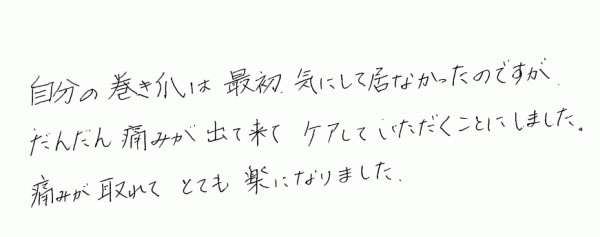 自分の巻き爪は最初、気にして居なかったのですが、
だんだん痛みが出て来てケアしていただくことにしました。
痛みが取れてとても楽になりました。